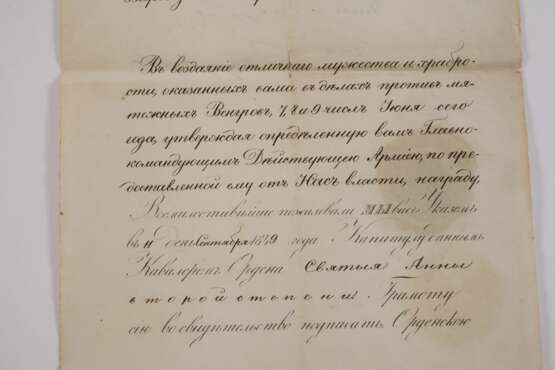 Въ воздаяніе отличнаго мужества и храбро-
сти, оказанныхъ вами въ дѣлахъ противъ мя-
тежныхъ Венгровъ, 7, 8 и 9 числъ Іюня сего
года, утверждая опредѣленную вамъ Главно-
командующимъ Дѣйствующею Арміею, по пре-
доставленной ему отъ Насъ власти, награду,
Всемилостивѣйше пожаловали МЫ васъ Указомъ
въ 11 день Сентября 1849 года Капитулу даннымъ
Кавалеромъ Ордена Святыя Анны
второй степени. Грамоту
сію во свидѣтельство подписать, Орденскою